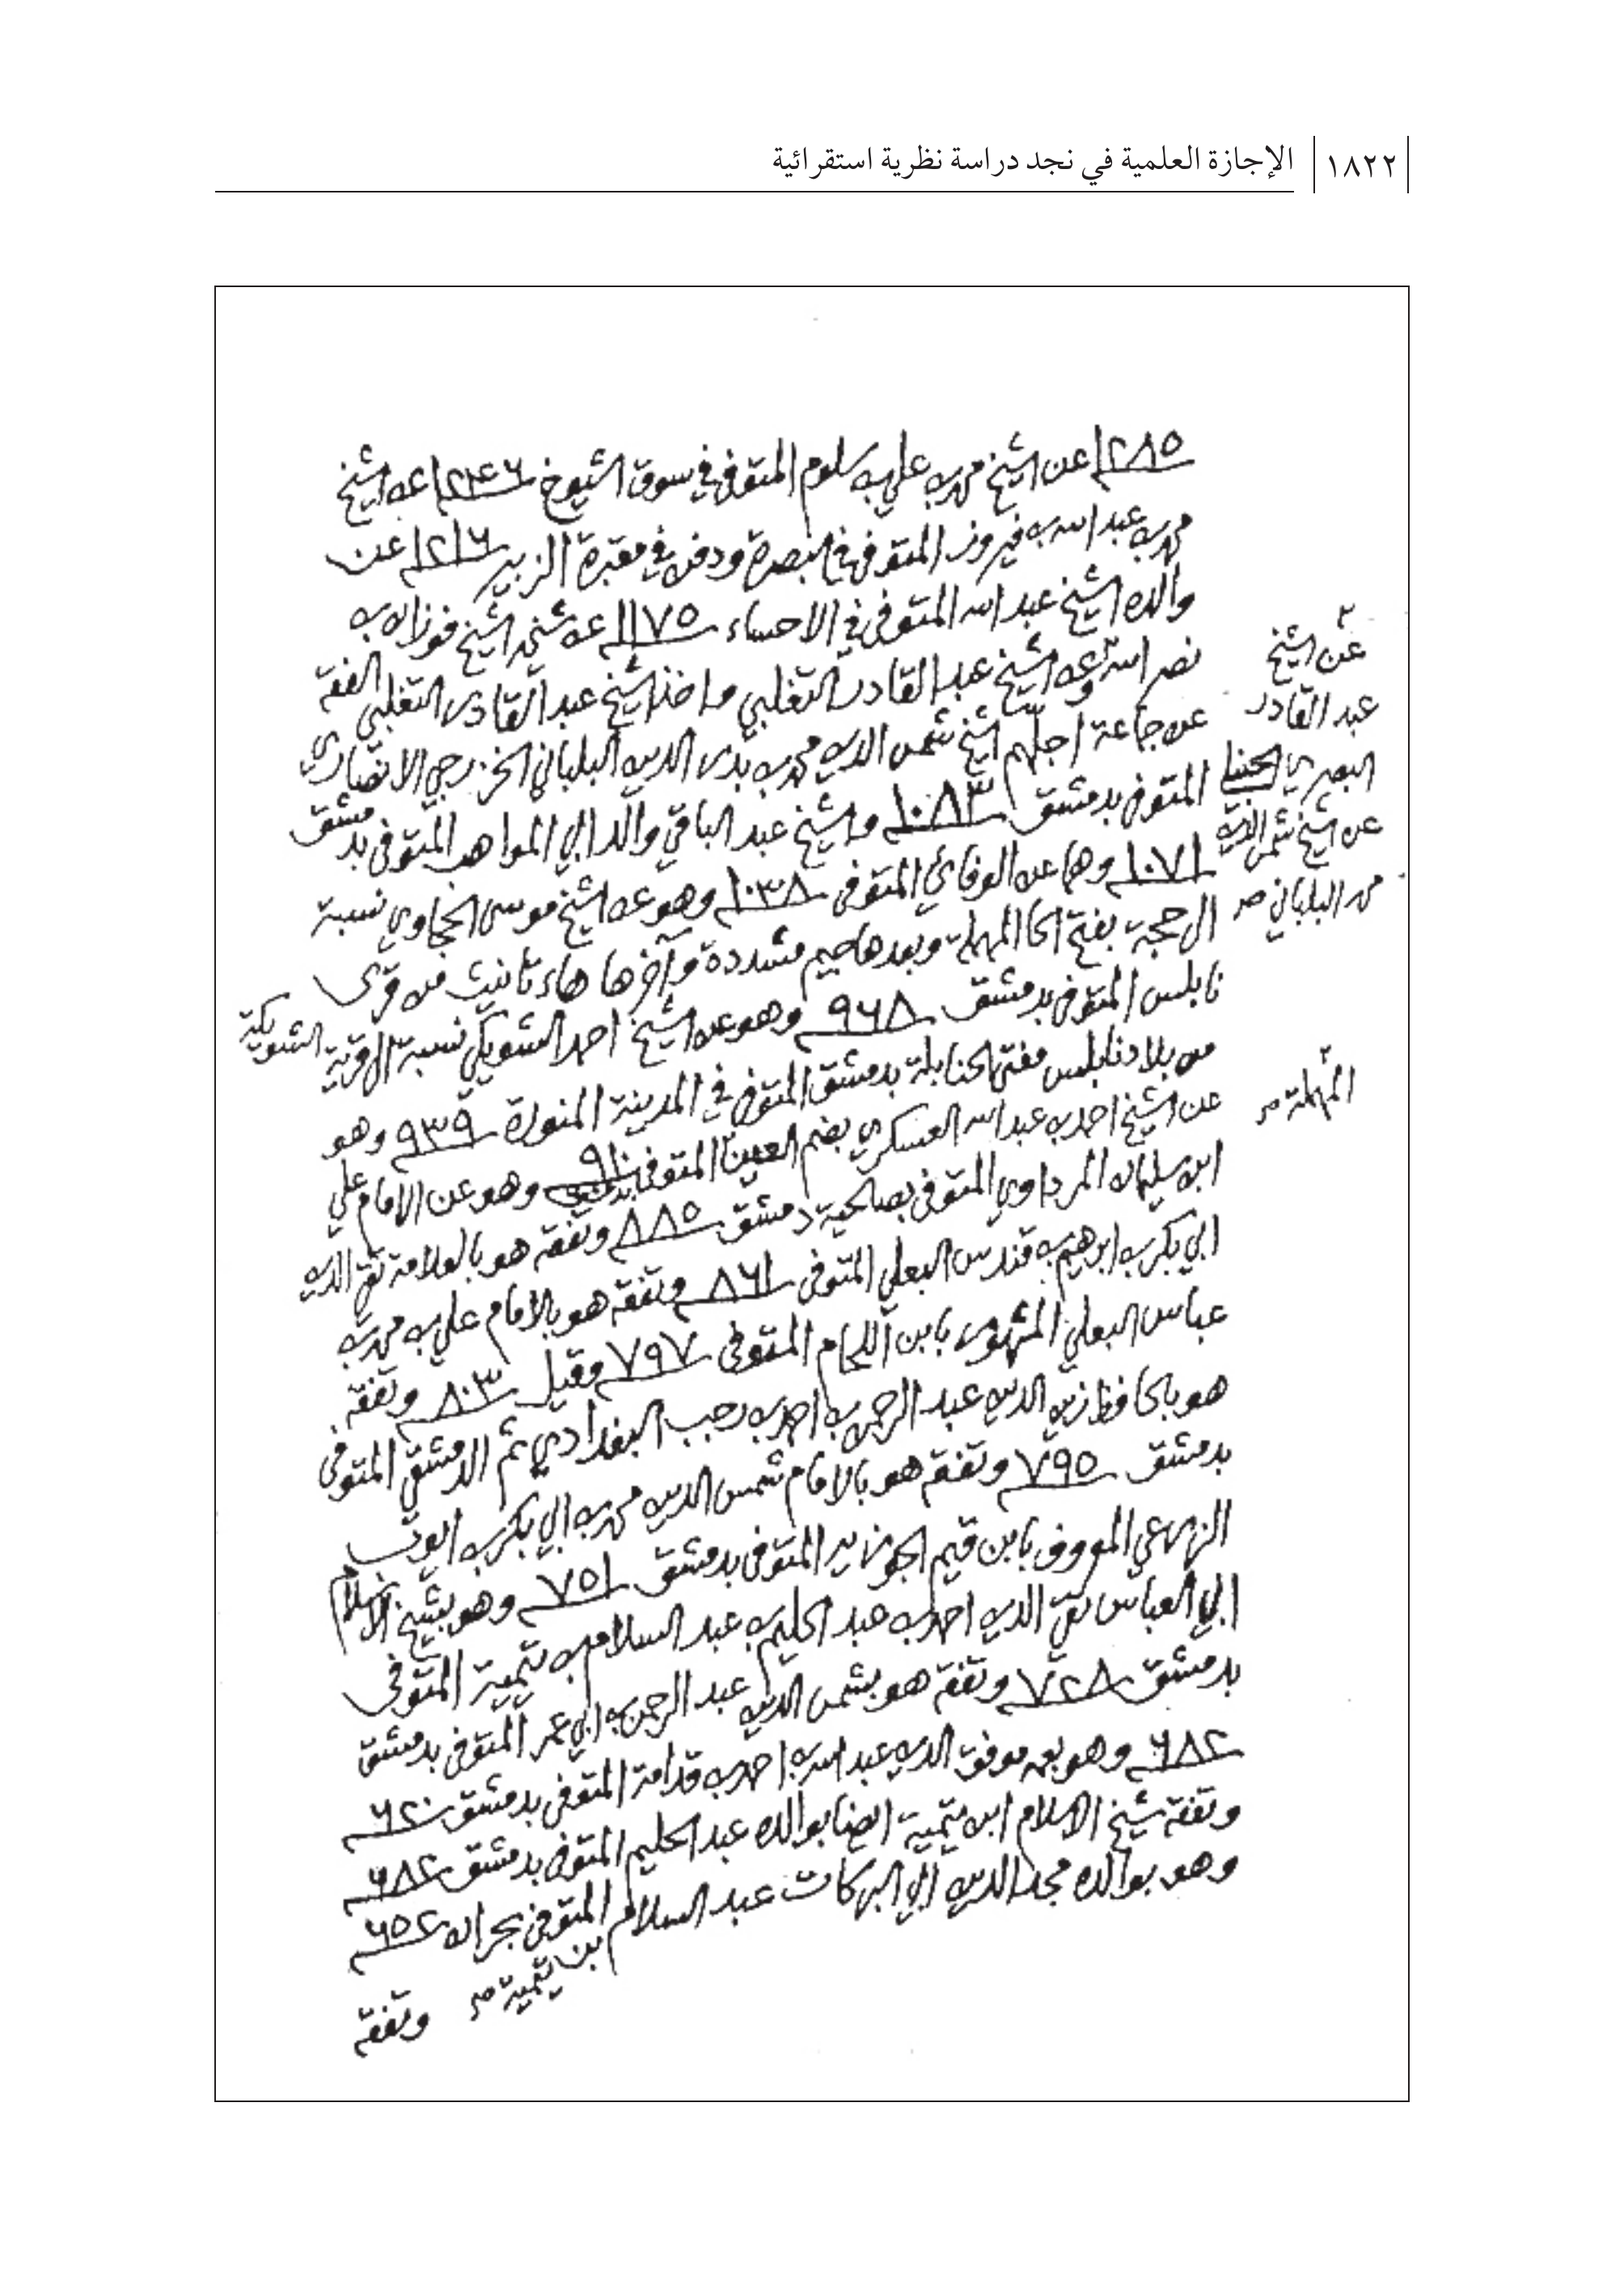 ١٨٢٢ الإجازة العلمية في نجد دراسة نظرية استقرائية
١٢٨٥ عن الشيخ محمد بن علي بن سلوم المتوفى في سوق الشيوخ ١٢٤٦ عن الشيخ
محمد بن عبد الله بن فيروز المتوفى في البصرة ودفن في مقبرة الزبير ١٢١٦ عن
والده الشيخ عبد الله المتوفى في الاحساء ١١٧٥ عن شيخه الشيخ فوزان بن
نصر الله عن الشيخ عبد القادر التغلبي واخذ الشيخ عبد القادر التغلبي الفقه
عن جماعة اجلهم الشيخ شمس الدين محمد بن بدر الدين البلباني الخزرجي الانصاري
المتوفى بدمشق ١٠٨٣ والشيخ عبد الباقي والد ابي المواهب المتوفى بدمشق
١٠٧١ وهما عن الوفائي المتوفى ١٠٣٨ وهو عن الشيخ موسى الحجاوي نسبة
الى حجة بفتح الحا المهملة وبعدها جيم مشددة وآخرها هاء تانيث من قرى
نابلس المتوفى بدمشق ٩٦٨ وهو عن الشيخ احمد الشويكي نسبة الى قرية الشويكة
من بلاد نابلس مفتي الحنابلة بدمشق المتوفى في المدينة المنورة ٩٣٩ وهو
عن الشيخ احمد بن عبد الله العسكري بضم العين المتوفى بدمشق ٩١٠ وهو عن الامام علي
ابن سليمان المرداوي المتوفى بصالحية دمشق ٨٨٥ وتفقه هو بالعلامة تقي الدين
ابي بكر بن ابرهيم بن قندس البعلي المتوفى ٨٦١ وتفقه هو بالامام علي بن محمد بن
عباس البعلي المشهور بابن اللحام المتوفى ٧٩٧ وقيل ٨٠٣ وتفقه
هو بالحافظ زين الدين عبد الرحمن بن احمد بن رجب البغدادي ثم الدمشقي المتوفى
بدمشق ٧٩٥ وتفقه هو بالامام شمس الدين محمد بن ابي بكر بن ايوب
الزرعي المعروف بابن قيم الجوزيه المتوفى بدمشق ٧٥١ وهو بشيخ الاسلام
ابي العباس تقي الدين احمد بن عبد الحليم بن عبد السلام بن تيمية المتوفى
بدمشق ٧٢٨ وتفقه هو بشمس الدين عبد الرحمن بن ابي عمر المتوفى بدمشق
٦٨٢ وهو بعمه موفق الدين عبد الله بن احمد بن قدامة المتوفى بدمشق ٦٢٠
وتفقه شيخ الاسلام ابن تيمية ايضا بوالده عبد الحليم المتوفى بدمشق ٦٨٢
وهو بوالده مجد الدين ابي البركات عبد السلام المتوفى بحران ٦٥٢
بن تيمية صح
وتفقه
عن الشيخ
عبد القادر
البصري الحنبلي
عن الشيخ شمس الدين
محمد البلباني صح
المهملة صح